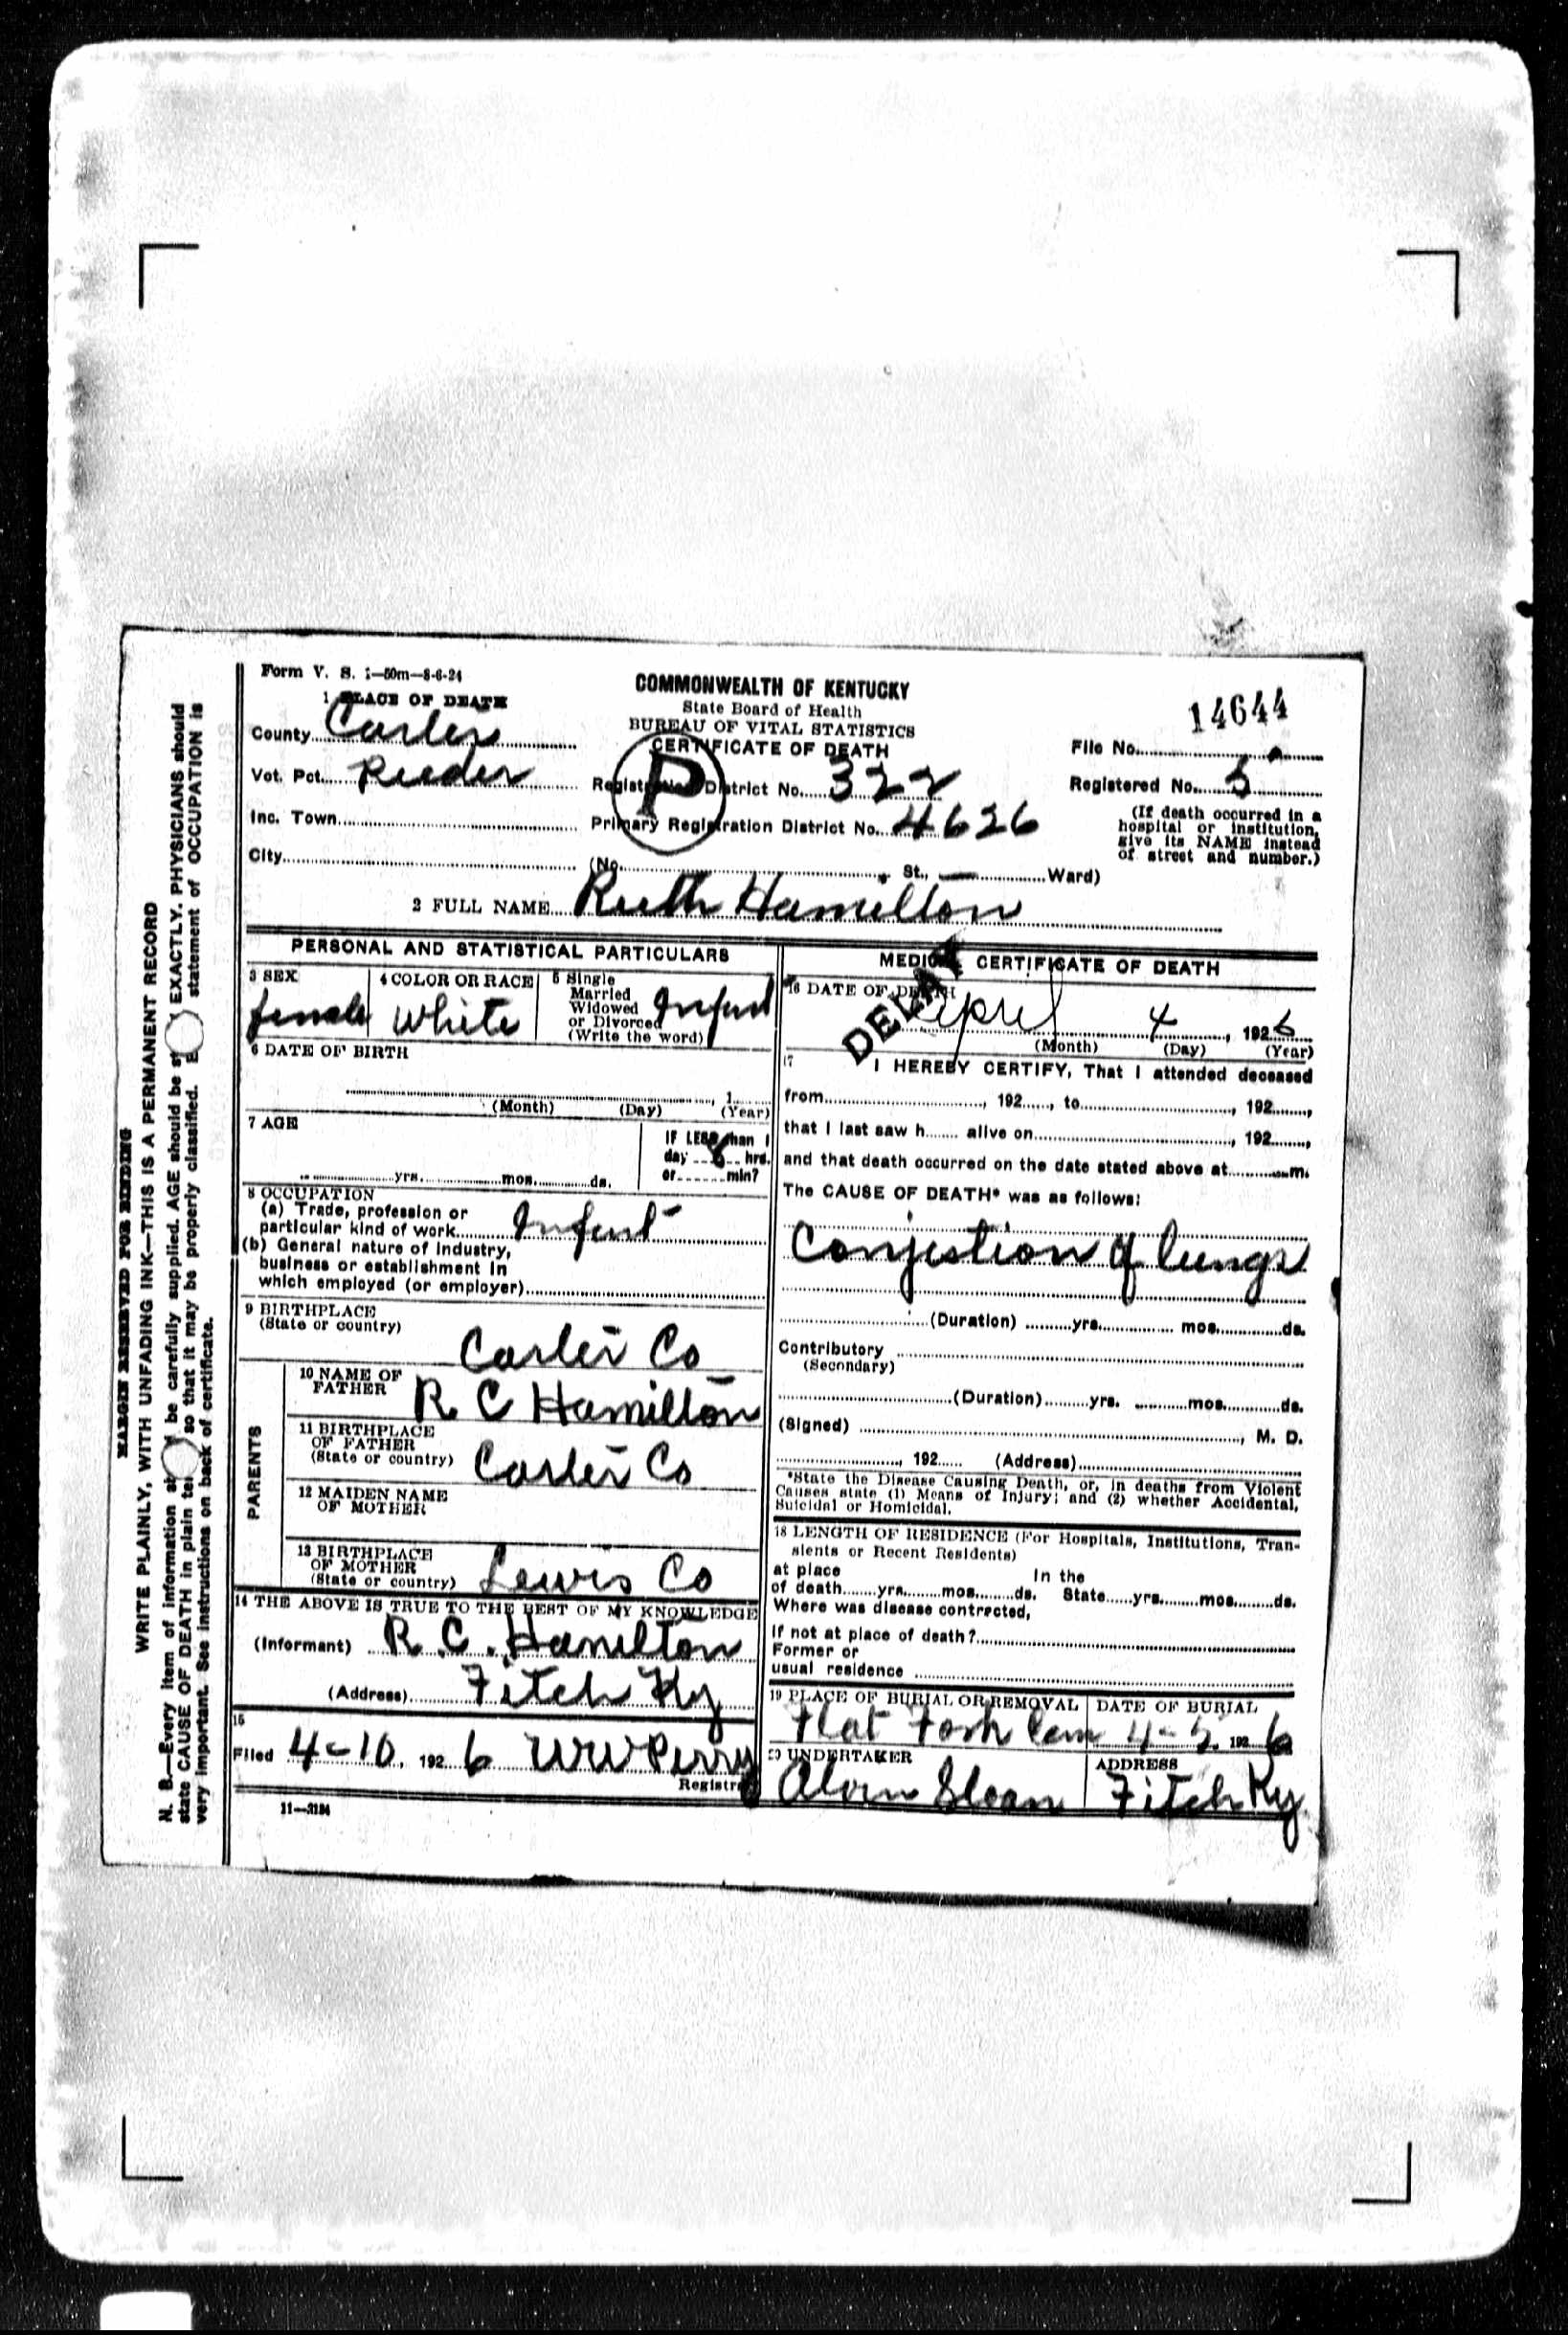 Form V. S. 1—50m—8-6-24
1 PLACE OF DEATH
County Carter
Vot. Pct. Reeder
Inc. Town
City
COMMONWEALTH OF KENTUCKY
State Board of Health
BUREAU OF VITAL STATISTICS
CERTIFICATE OF DEATH
P
Registration District No. 322
Primary Registration District No. 4626
(No. St., Ward)
14644
File No.
Registered No. 5
(If death occurred in a
hospital or institution,
give its NAME instead
of street and number.)
2 FULL NAME Ruth Hamilton
PERSONAL AND STATISTICAL PARTICULARS
3 SEX
female
4 COLOR OR RACE
White
5 Single
Married
Widowed
or Divorced
(Write the word)
Infant
6 DATE OF BIRTH
, 1
(Month) (Day) (Year)
7 AGE
yrs. mos. ds.
IF LESS than 1
day hrs.
or min?
8 OCCUPATION
(a) Trade, profession or
particular kind of work Infant
(b) General nature of industry,
business or establishment in
which employed (or employer)
9 BIRTHPLACE
(State or country)
Carter Co
PARENTS
10 NAME OF
FATHER
R. C Hamilton
11 BIRTHPLACE
OF FATHER
(State or country) Carter Co
12 MAIDEN NAME
OF MOTHER
13 BIRTHPLACE
OF MOTHER
(State or country) Lewis Co
14 THE ABOVE IS TRUE TO THE BEST OF MY KNOWLEDGE
(Informant) R. C. Hamilton
(Address) Fitch Ky
15
Filed 4-10, 1926 WW Perry
Registrar
11—3184
MEDICAL CERTIFICATE OF DEATH
DELAY
16 DATE OF DEATH
April 4, 1926
(Month) (Day) (Year)
17
I HEREBY CERTIFY, That I attended deceased
from , 192 , to , 192 ,
that I last saw h alive on , 192 ,
and that death occurred on the date stated above at m.
The CAUSE OF DEATH* was as follows:
Conjestion of lungs
(Duration) yrs. mos. ds.
Contributory
(Secondary)
(Duration) yrs. mos. ds.
(Signed) , M. D.
, 192 (Address)
*State the Disease Causing Death, or, in deaths from Violent
Causes state (1) Means of Injury; and (2) whether Accidental,
Suicidal or Homicidal.
18 LENGTH OF RESIDENCE (For Hospitals, Institutions, Tran-
sients or Recent Residents)
at place In the
of death yrs. mos. ds. State yrs. mos. ds.
Where was disease contracted,
if not at place of death?
Former or
usual residence
19 PLACE OF BURIAL OR REMOVAL
Flat Fork Cem
DATE OF BURIAL
4-5, 1926
20 UNDERTAKER
Sloan
ADDRESS
Fitch Ky
MARGIN RESERVED FOR BINDING
WRITE PLAINLY, WITH UNFADING INK—THIS IS A PERMANENT RECORD
N. B.—Every item of information be carefully supplied. AGE should be EXACTLY. PHYSICIANS should
state CAUSE OF DEATH in plain so that it may be properly classified. statement of OCCUPATION is
very important. See instructions on back of certificate.